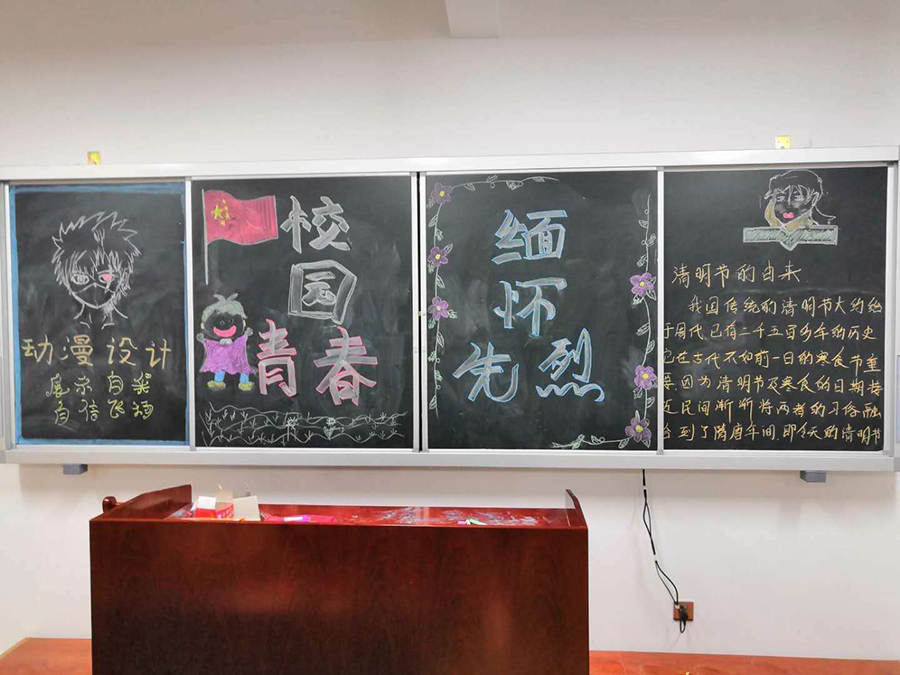 动漫设计
展示自我
自信飞扬
校
园
青春
缅
怀
先烈
清明节的由来
我国传统的清明节大约始
于周代已有二千五百多年的历史
它在古代不如前一日的寒食节重
要因为清明节及寒食的日期接
近民间渐渐将两者的习俗融
合到了隋唐年间即今天的清明节